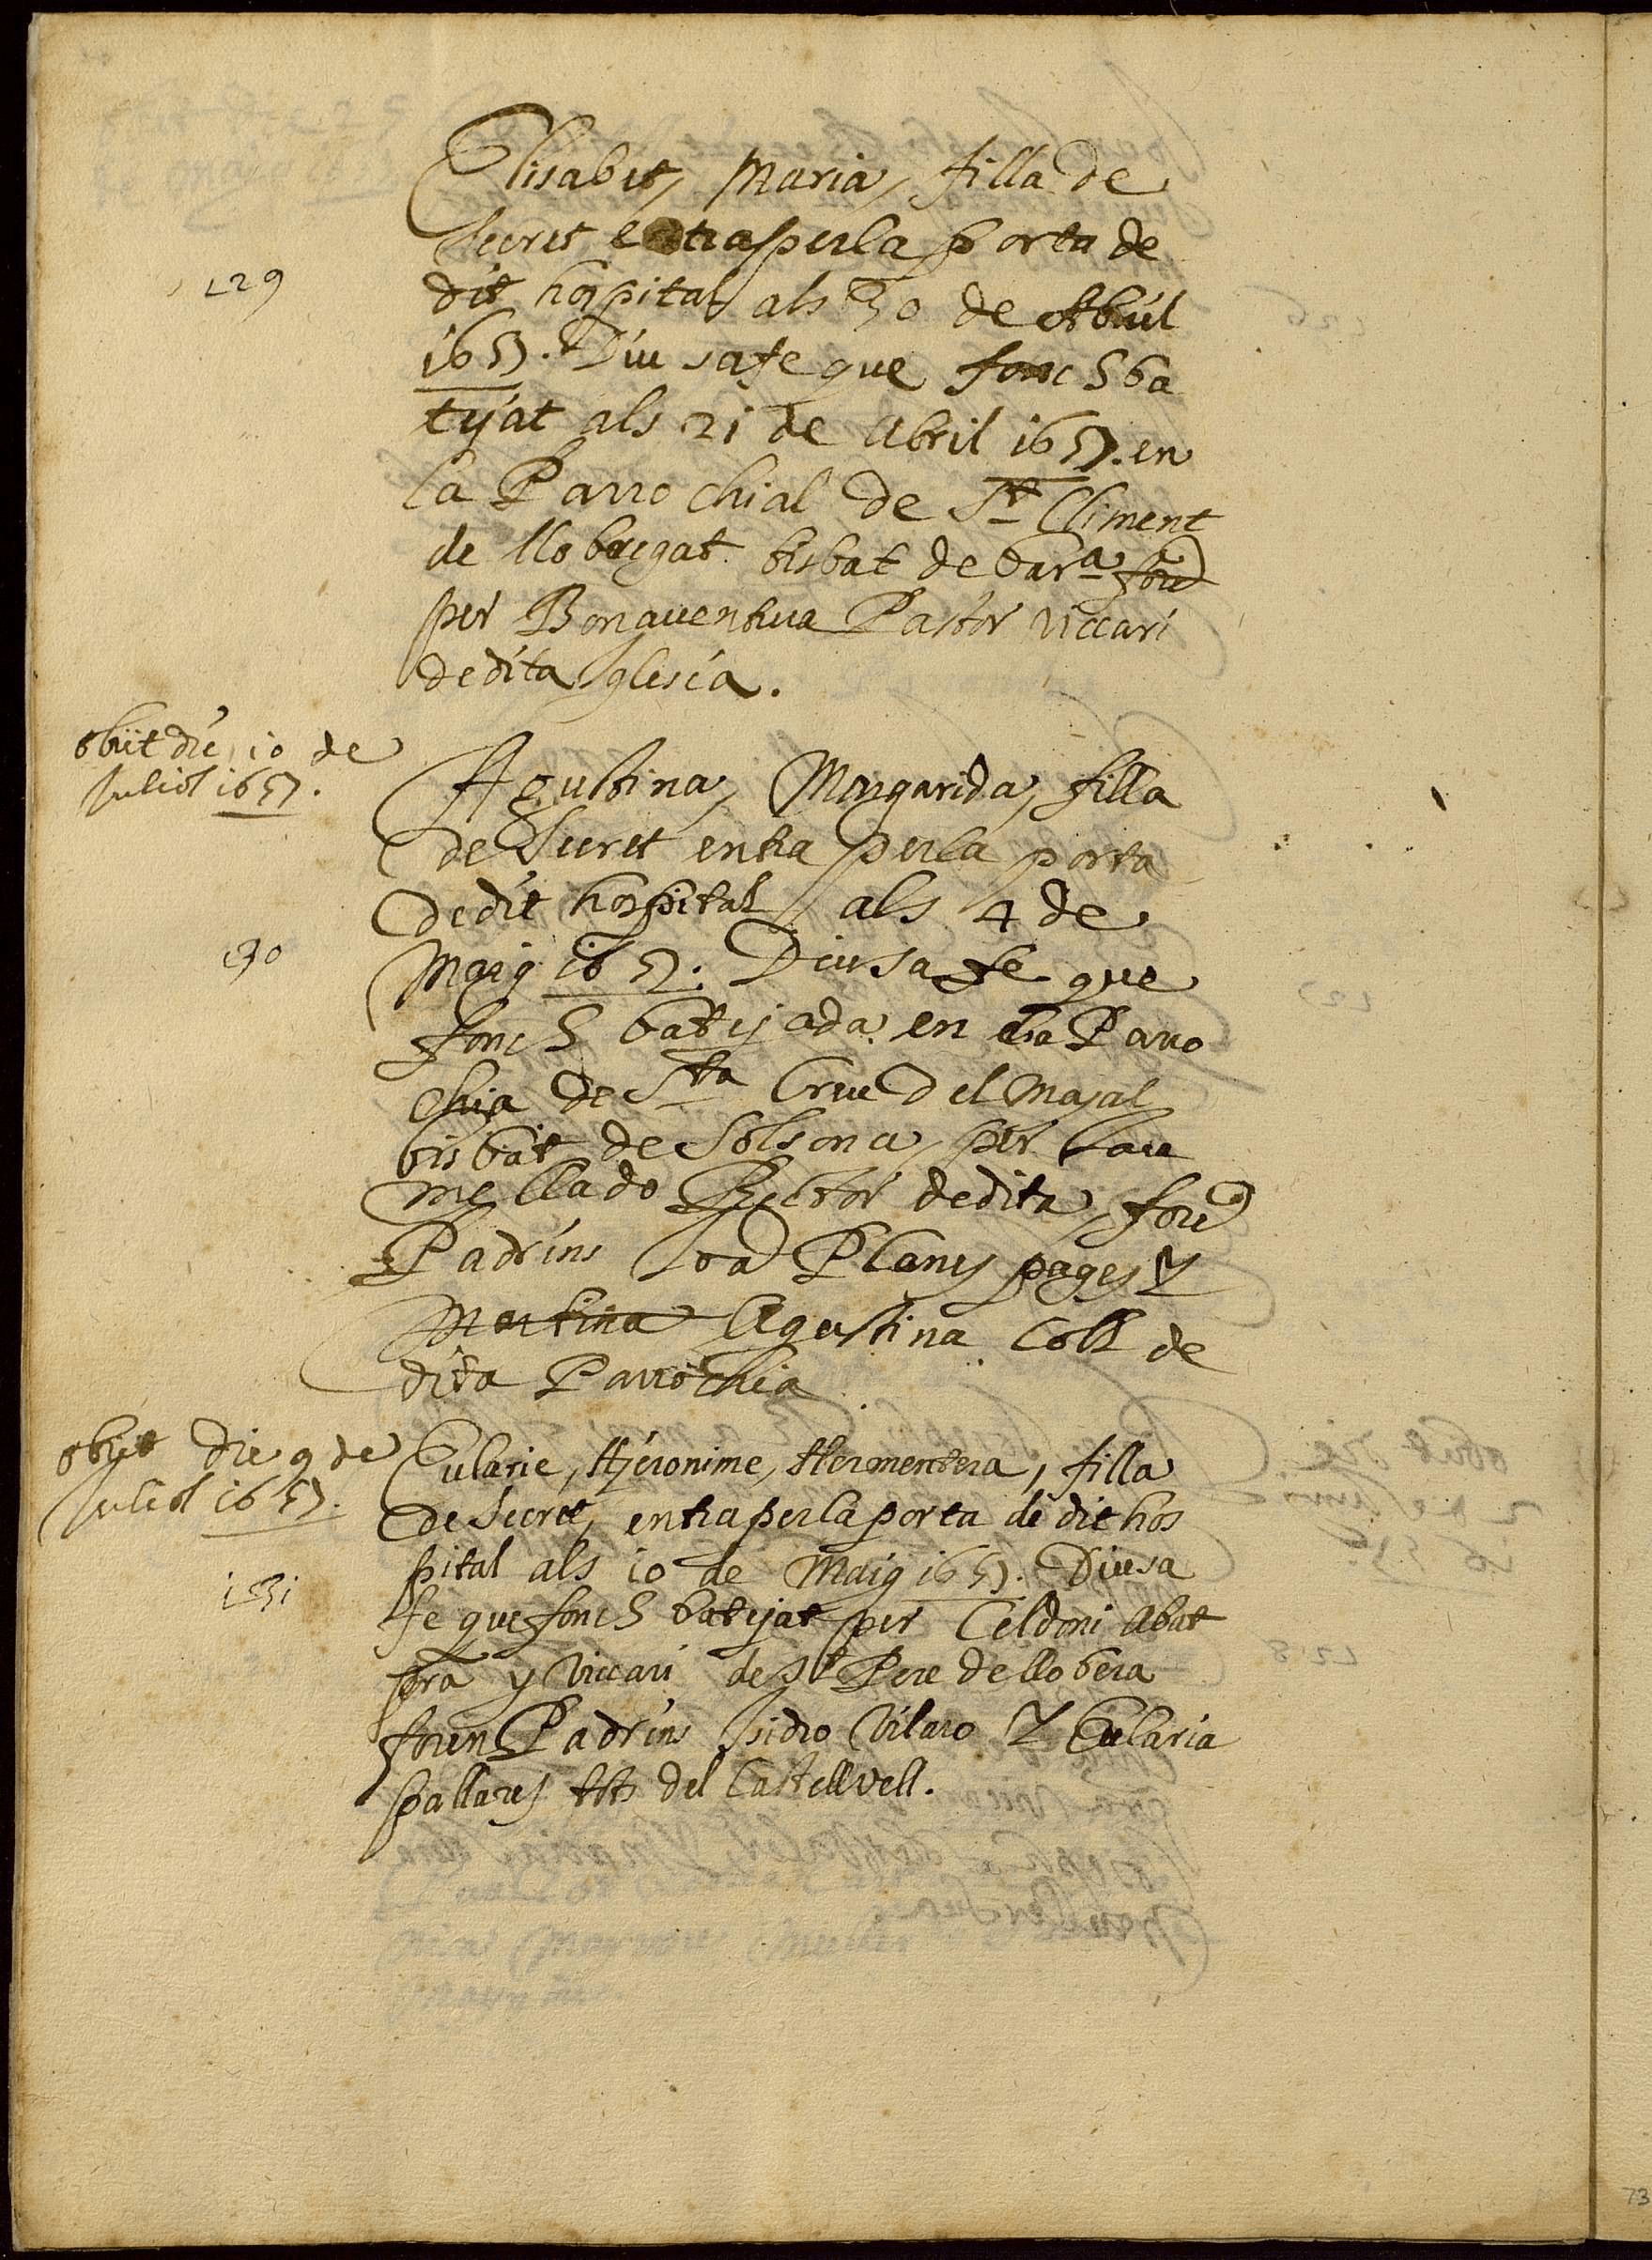 Elisabet, Maria, filla de
secret entra per la porta de
129
dit hospital als 30 de Abril
1657. Diu sa fe que fonc s ba
tyat als 21 de Abril 1657. en
la Parrochial de St Climent
de llobregat bisbat de Bar.a
per Bonaventura Pastor viccari
de dita Iglesia.
obiit die 10 de
Juliol 1657.
Agustina, Margarida, filla
de secret entra per la porta
de dit hospital als 4 de
130
Maig 1657. Diu sa fe que
foncs batyada en la Parro
chia de Sta Creu del Majal
bisbat de Solsona, per Jau
me llado Rector de dita, foré
Padrins Joã Planes pages Y
Martina Agustina Coll de
dita Parrochia
obiit die 9 de
Juliol 1657.
Eularie, Hieronime, Hermentera, filla
de secret, entra per la porta de dit hos
pital als 10 de Maig 1657. Diu sa
131
fe que foncs batejat per Celdoni Abat
pra y viccari de St Pere de llobera
foren Padrins Isidro Vilaro Y Eularia
Pallares tots del Castellvell.
73